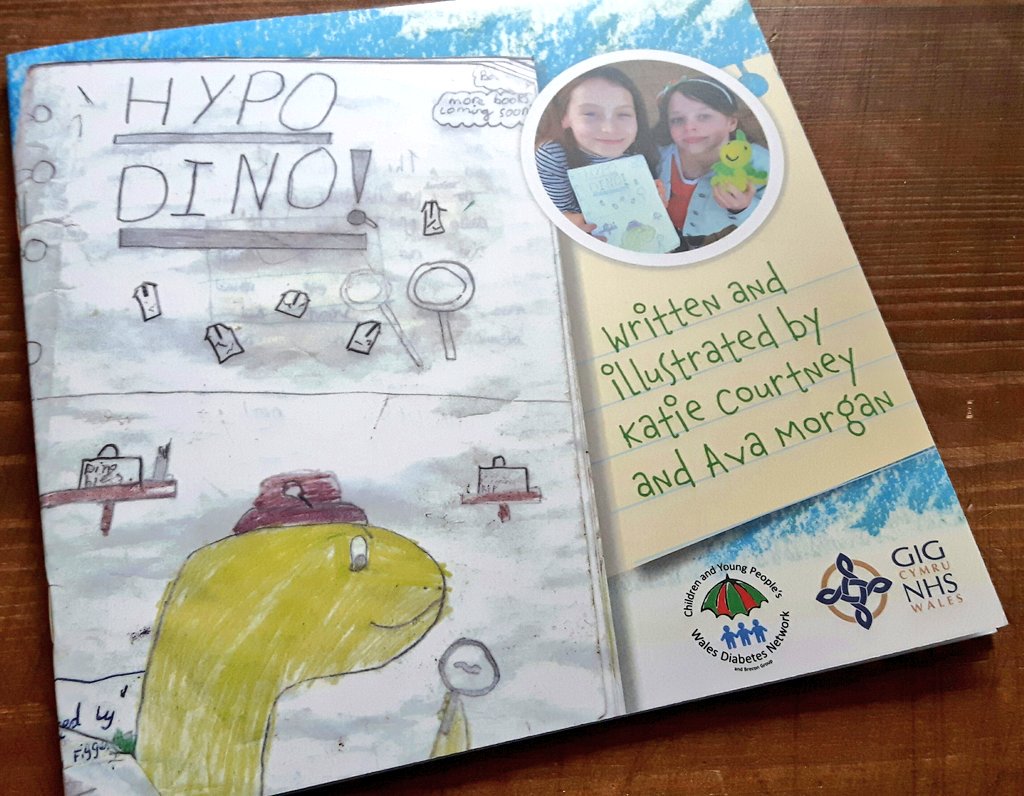 HYPO
DINO!
more books
coming soon
Written and
illustrated by
Katie Courtney
and Ava Morgan
Children and Young People's
Wales Diabetes Network
and Brecon Group
GIG
CYMRU
NHS
WALES
HYPO
DINO!